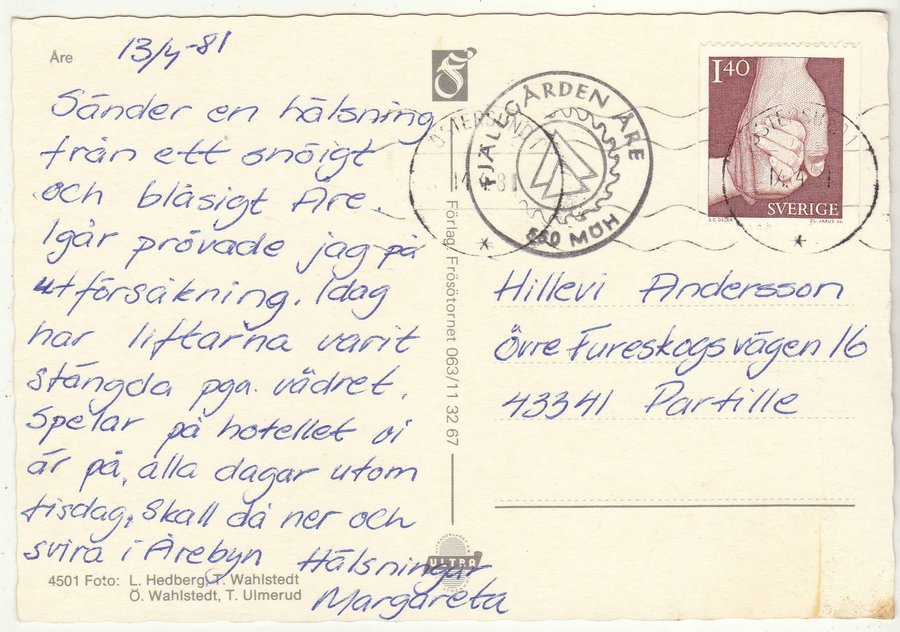 Åre
13/4-81
Sänder en hälsning
från ett snöigt
och blåsigt Åre.
Igår prövade jag på
utförsåkning. Idag
har liftarna varit
stängda pga. vädret.
Spelar på hotellet vi
är på, alla dagar utom
tisdag. Skall då ner och
svira i Årebyn Hälsningar
Margareta
4501 Foto: L. Hedberg, T. Wahlstedt
Ö. Wahlstedt, T. Ulmerud
Förlag: Frösötornet 063/11 32 67
ULTRA
FJÄLLGÅRDEN ÅRE
660 MÖH
ÖSTERSUND 1
14 81
1 40
SVERIGE
ÖSTERSUND
14.4 1
Hillevi Andersson
Övre Fureskogsvägen 16
43341 Partille